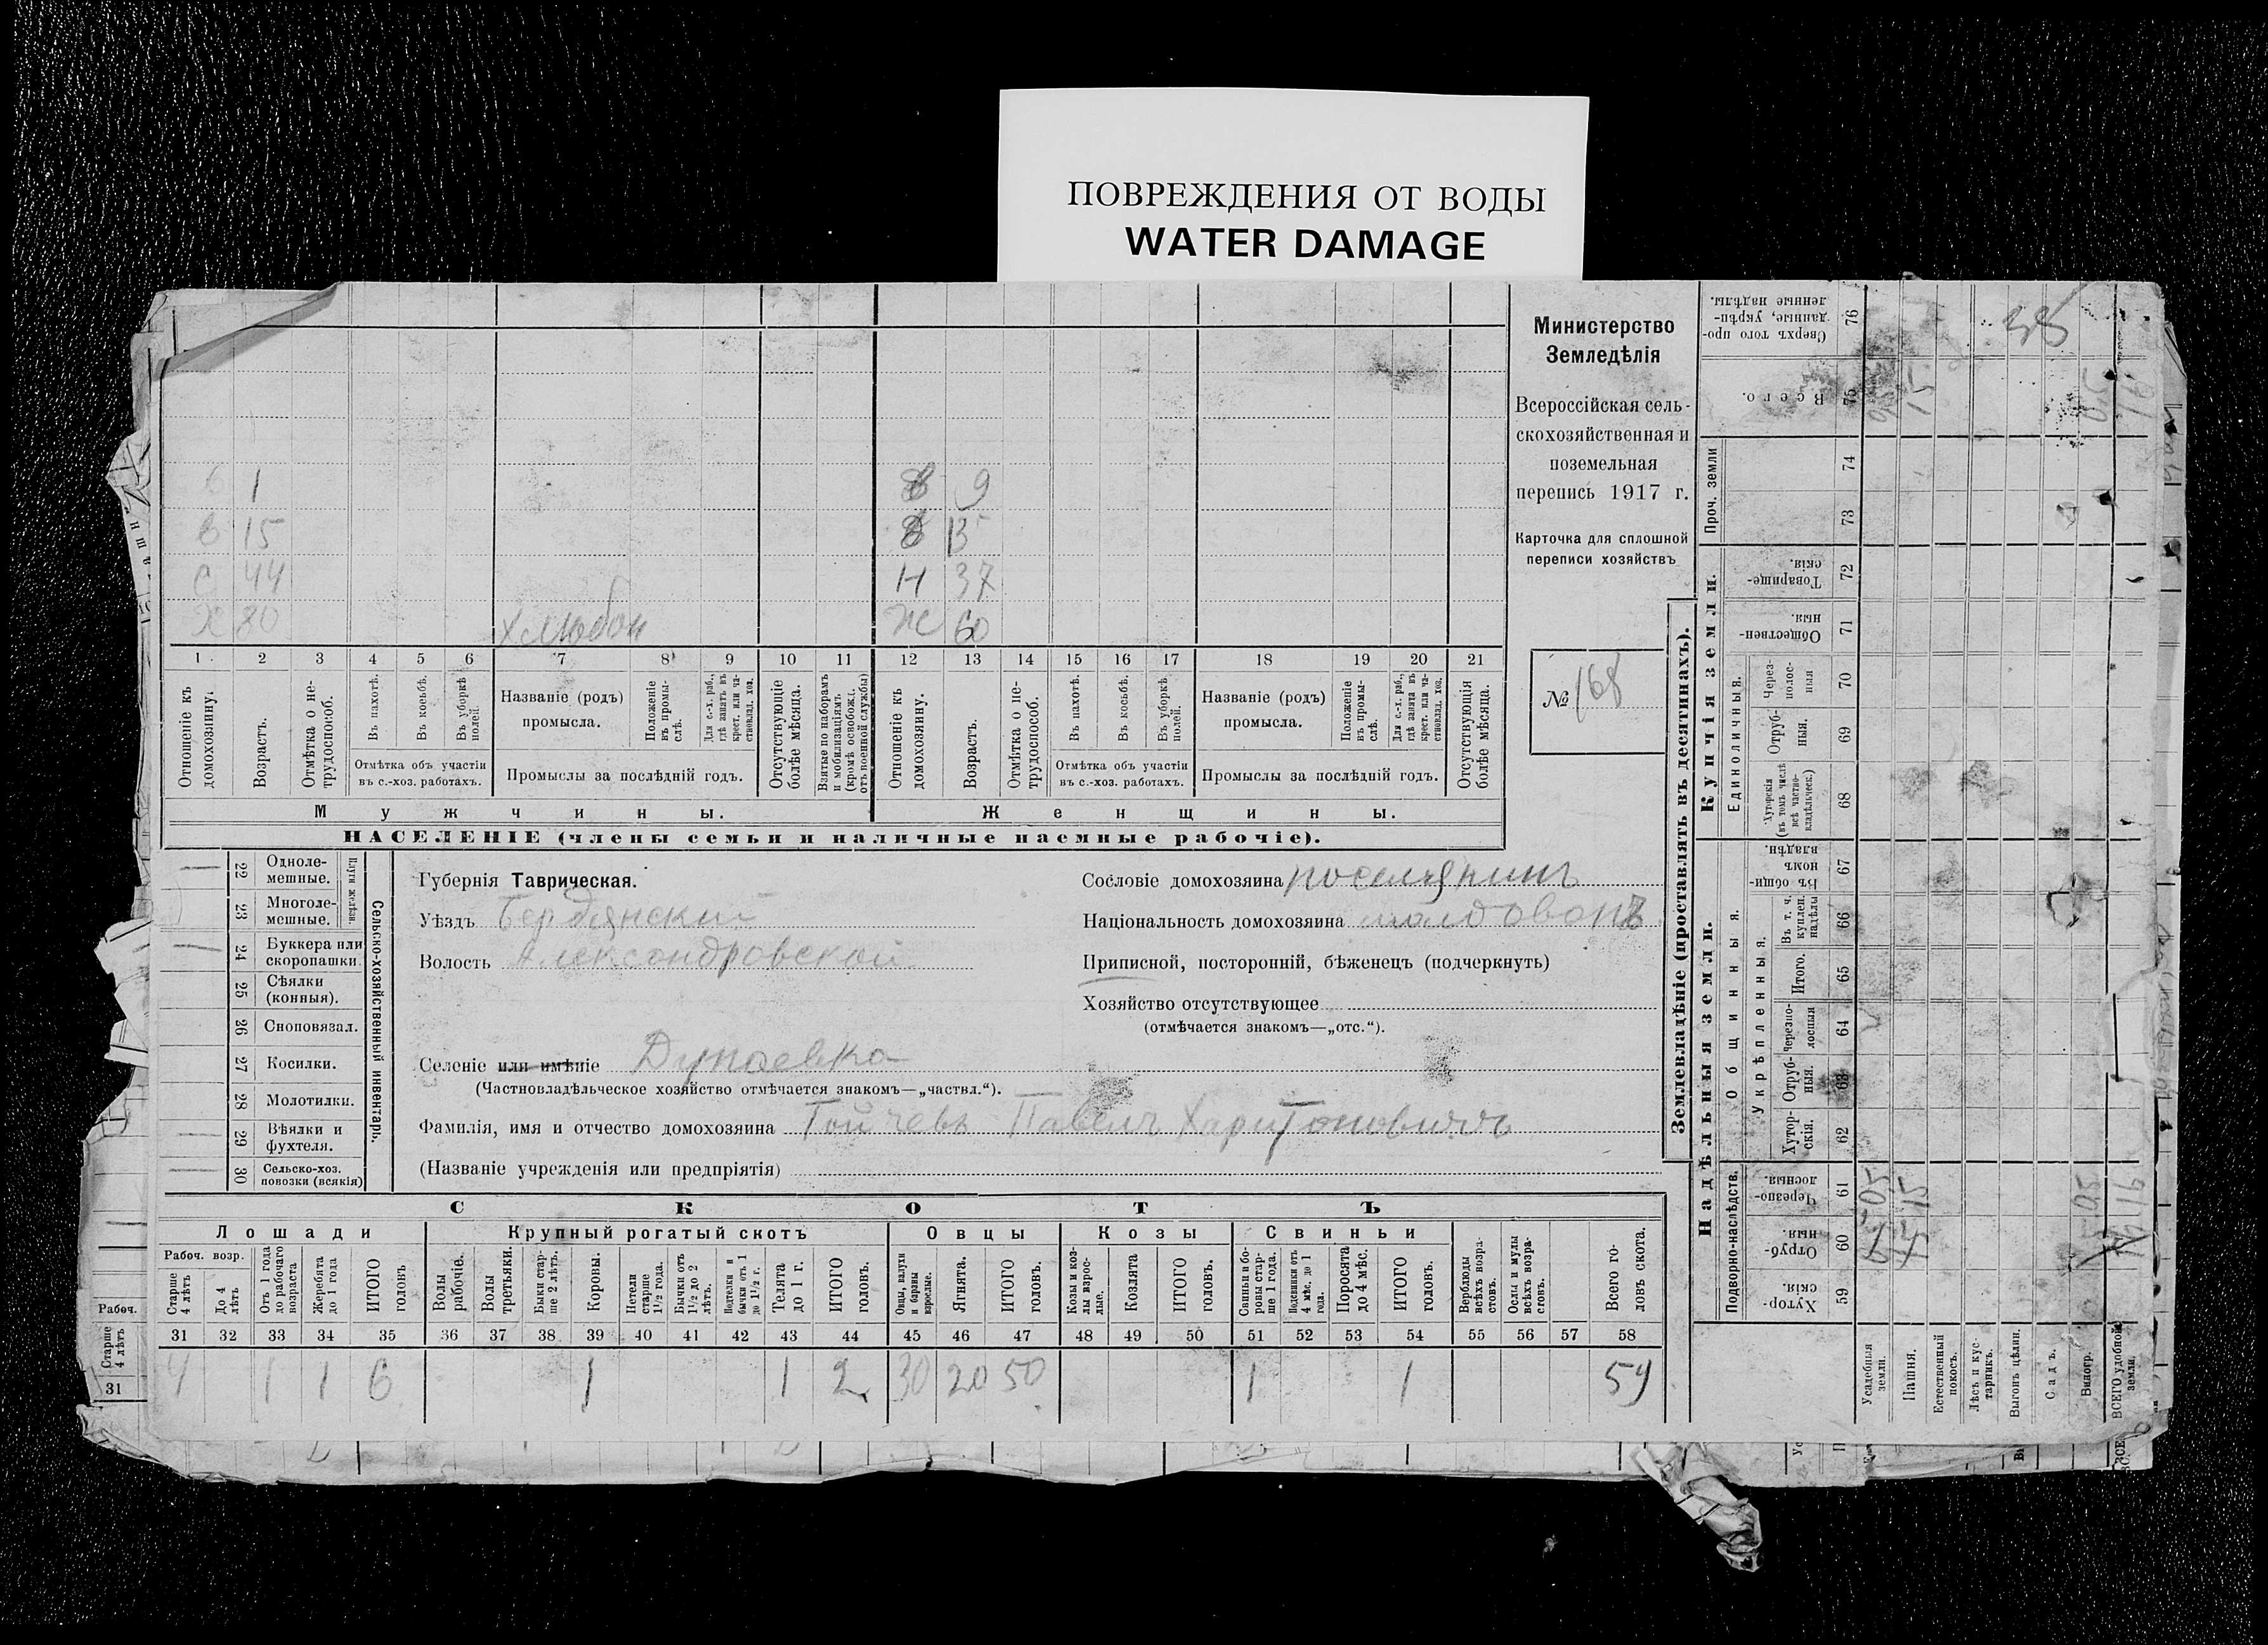 ПОВРЕЖДЕНИЯ ОТ ВОДЫ
WATER DAMAGE
Министерство
Земледѣлія
Всероссійская сель-
скохозяйственная и
поземельная
перепись 1917 г.
Карточка для сплошной
переписи хозяйствъ
№ 168
1 9
в 15 13
с 44 Н 37
Х 80 Ж 60
1 2 3 4 5 6 7 8 9 10 11 12 13 14 15 16 17 18 19 20 21
Отношеніе къ домохозяину.
Возрастъ.
Отмѣтка о не-трудоспособ.
Въ пахотѣ.
Въ косьбѣ.
Въ уборкѣ полей.
Отмѣтка объ участіи
въ с.-хоз. работахъ.
Названіе (родъ)
промысла.
Положеніе въ промы-слѣ.
Для с.-х. раб., гдѣ занятъ въ крест. или ча-стновлад. хоз.
Промыслы за послѣдній годъ.
Отсутствующіе болѣе мѣсяца.
Взятые по наборамъ и мобилизаціямъ (кромѣ освобожд. отъ военной службы)
Отношеніе къ домохозяину.
Возрастъ.
Отмѣтка о не-трудоспособ.
Въ пахотѣ.
Въ косьбѣ.
Въ уборкѣ полей.
Отмѣтка объ участіи
въ с.-хоз. работахъ.
Названіе (родъ)
промысла.
Положеніе въ промы-слѣ.
Для с.-х. раб., гдѣ занята въ крест. или ча-стновлад. хоз.
Промыслы за послѣдній годъ.
Отсутствующія болѣе мѣсяца.
Мужчины.
Женщины.
НАСЕЛЕНІЕ (члены семьи и наличные наемные рабочіе).
22 Одноле-мешные.
23 Многоле-мешные.
Плуги желѣзн.
24 Буккера или скоропашки.
25 Сѣялки (конныя).
26 Сноповязал.
27 Косилки.
28 Молотилки.
29 Вѣялки и фухтеля.
30 Сельско-хоз. повозки (всякія)
Сельско-хозяйственный инвентарь.
Губернія Таврическая.
Уѣздъ Бердянский
Волость Александровской
Селеніе или имѣніе Дунаевка
(Частновладѣльческое хозяйство отмѣчается знакомъ—„частвл.“).
Фамилія, имя и отчество домохозяина Тойчевъ Павелъ Харитоновичъ
(Названіе учрежденія или предпріятія)
Сословіе домохозяина поселянинъ
Національность домохозяина молдованъ
Приписной, посторонній, бѣженецъ (подчеркнуть)
Хозяйство отсутствующее
(отмѣчается знакомъ—„отс.“).
СКОТЪ
Лошади
Крупный рогатый скотъ
Овцы
Козы
Свиньи
Рабоч. возр.
Старше 4 лѣтъ
До 4 лѣтъ
Отъ 1 года до рабочаго возраста
Жеребята до 1 года
ИТОГО головъ
Волы рабочіе.
Волы третьяки.
Быки стар-ше 2 лѣтъ.
Коровы.
Нетели старше 1½ года.
Бычки отъ 1½ до 2 лѣтъ.
Подтелки и бычки отъ 1 до 1½ г.
Телята до 1 г.
ИТОГО головъ.
Овцы, валухи и бараны взрослые.
Ягнята.
ИТОГО головъ.
Козы и коз-лы взрос-лые.
Козлята
ИТОГО головъ.
Свиньи и бо-ровы стар-ше 1 года.
Подсвинки отъ 4 мѣс. до 1 года.
Поросята до 4 мѣс.
ИТОГО головъ.
Верблюды всѣхъ возра-стовъ.
Ослы и мулы всѣхъ возра-стовъ.
Всего го-ловъ скота.
31 32 33 34 35 36 37 38 39 40 41 42 43 44 45 46 47 48 49 50 51 52 53 54 55 56 57 58
4 1 1 6 1 1 2 30 20 50 1 1 59
Рабоч.
Старше 4 лѣтъ
31
Землевладѣніе (проставлять въ десятинахъ).
Надѣльныя земли.
Купчія земли.
Проч. земли
Подворно-наслѣдств.
Общинныя.
Укрѣпленныя.
Единоличныя.
Хутор-скія. 59
Отруб-ныя. 60
Черезпо-лосныя. 61
Хутор-скія. 62
Отруб-ныя. 63
Черезпо-лосныя 64
Итого. 65
Въ т. ч. куплен. надѣлы 66
Въ общин-номъ владѣн. 67
Хуторскія (въ томъ числѣ всѣ частно-владѣльческ.) 68
Отруб-ныя. 69
Через-полос-ныя 70
Обществен-ныя 71
Товарище-скія. 72
73
74
Всего. 75
Сверхъ того про-данные, укрѣп-ленные надѣлы. 76
Усадебныя земли.
Пашня. 15 15
Естественный покосъ.
Лѣсъ и кус-тарникъ.
Выгонъ цѣлин.
Садъ.
Виногр.
ВСЕГО удобной земли.